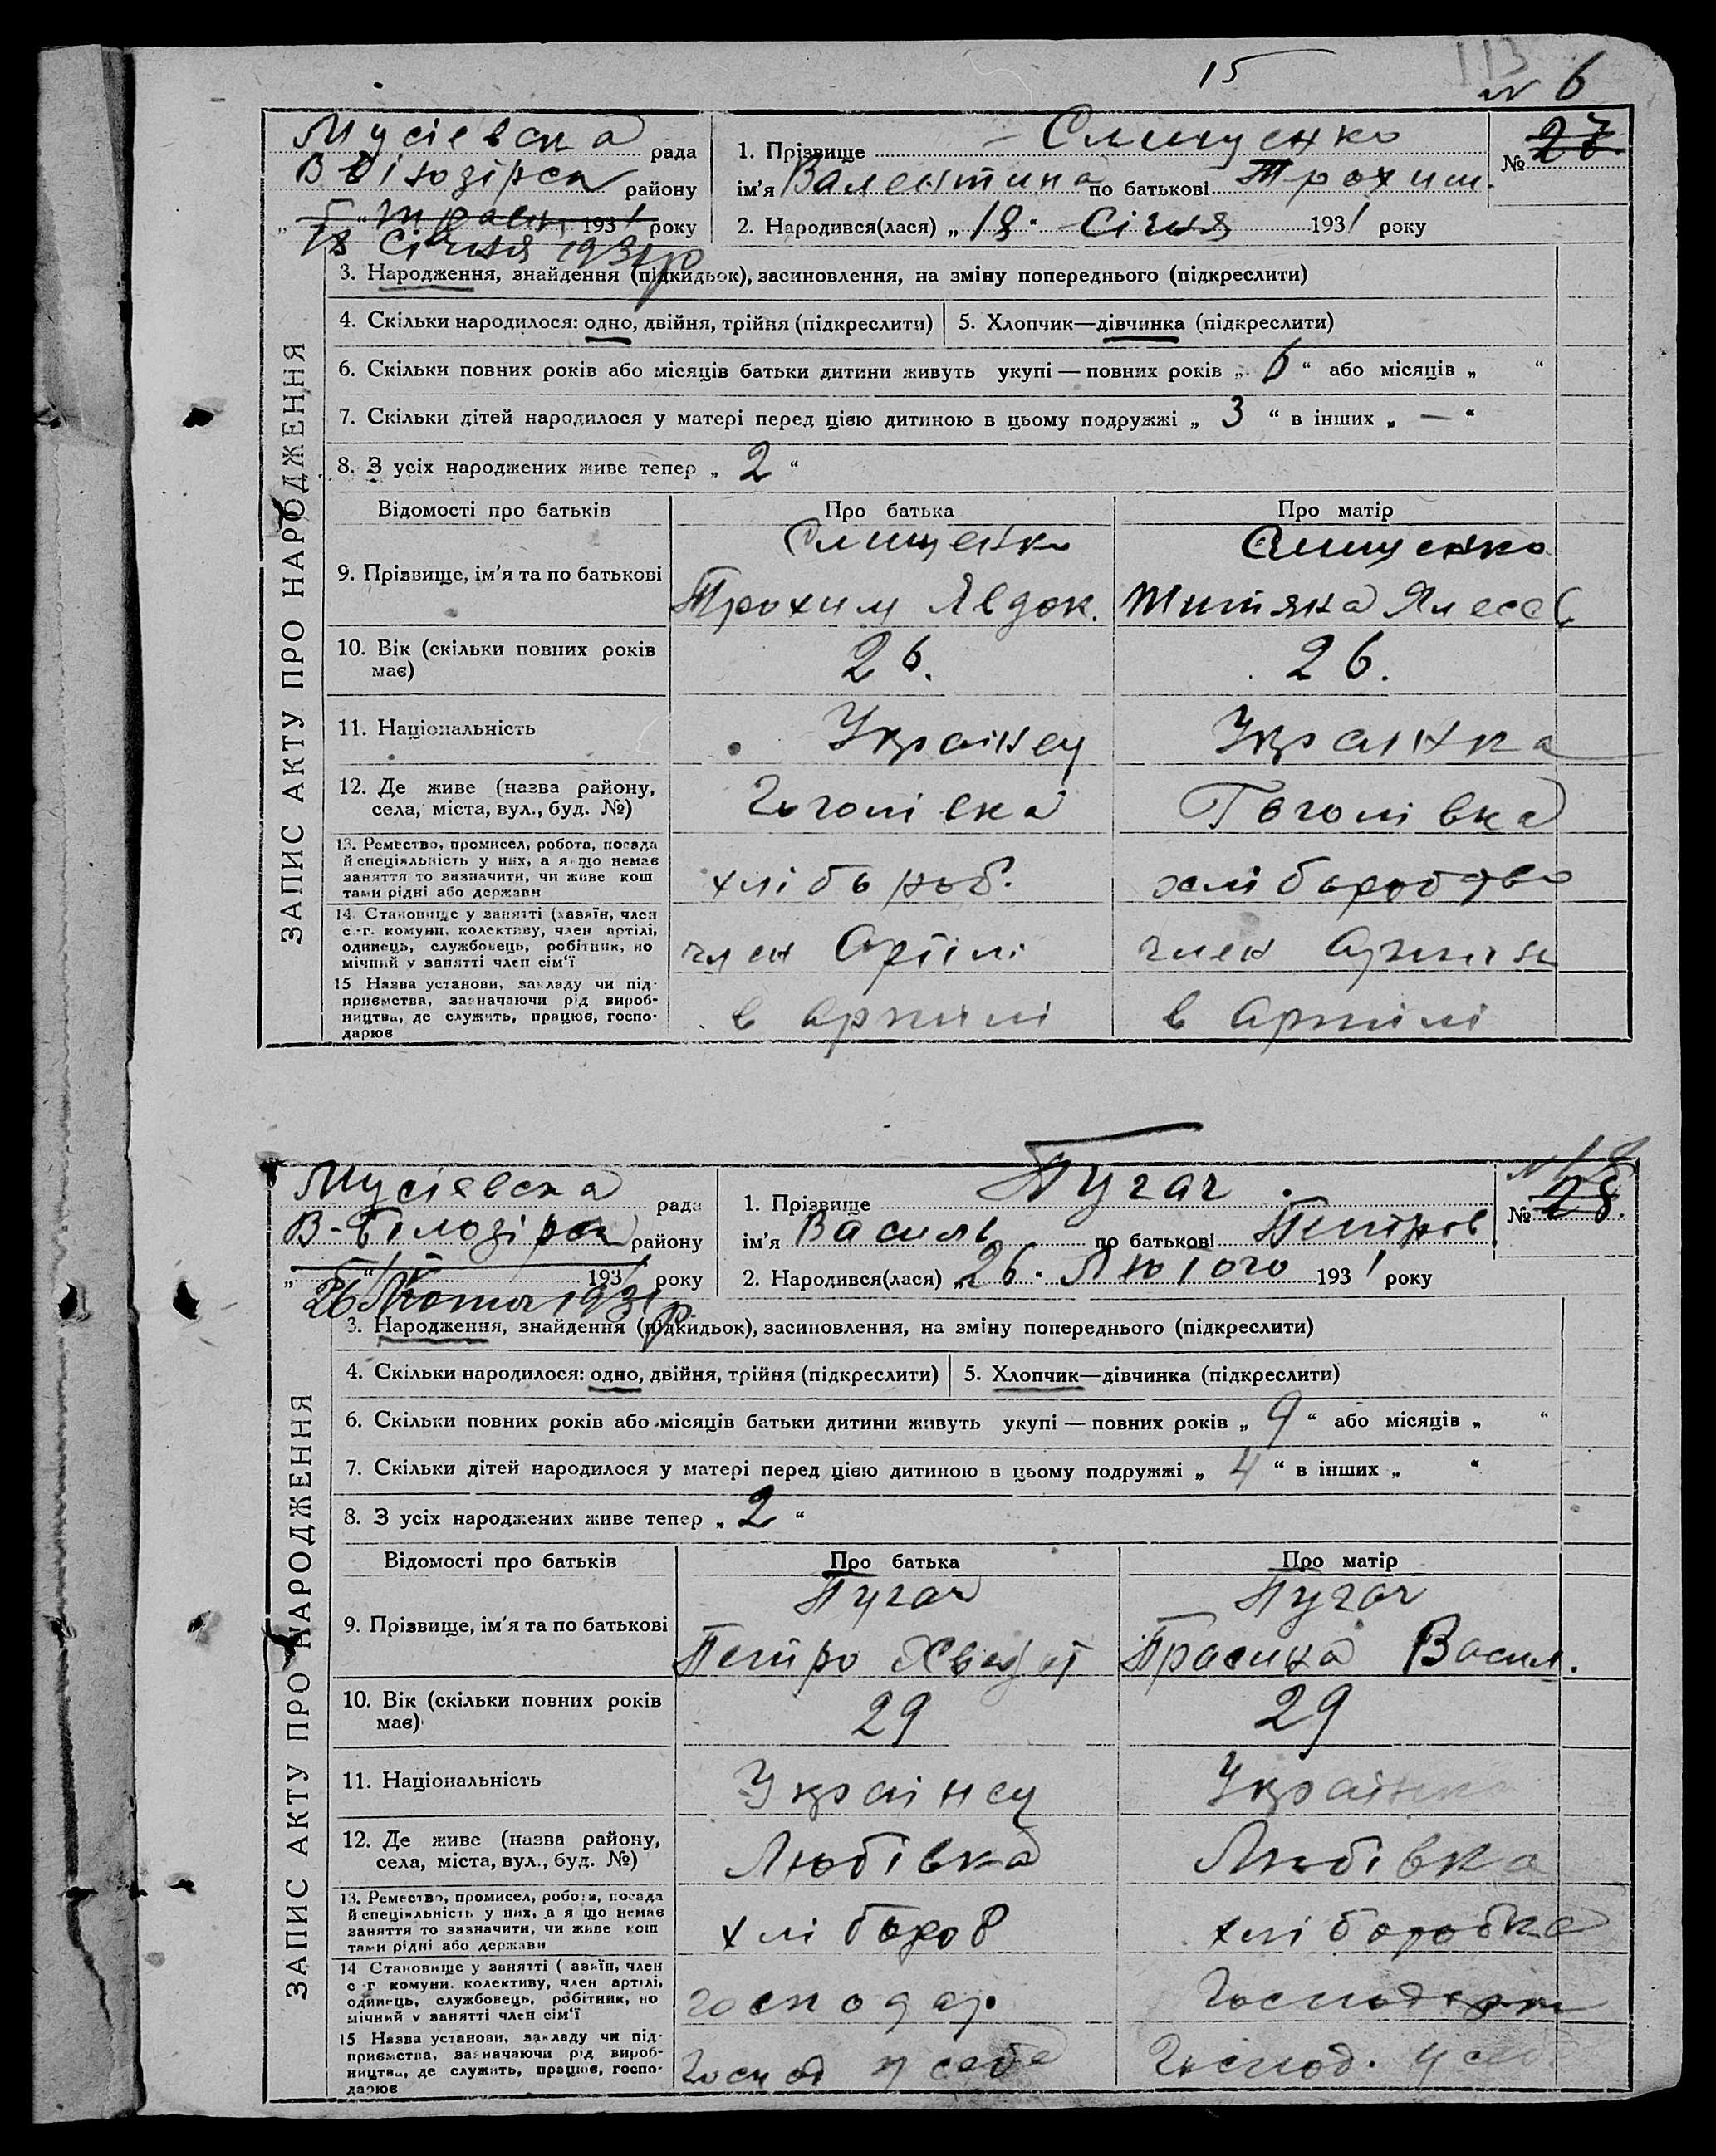 15
113
№ 6
Мусієвска рада
В Білозірск району
„ 5 “ травн, 1931 року
18 Січня 1931 р
1. Прізвище Слищенко
ім'я Валентина по батькові Трохим.
2. Народився(лася) „ 18 “ Січня 1931 року
№ 27
ЗАПИС АКТУ ПРО НАРОДЖЕННЯ
3. Народження, знайдення (підкидьок), засиновлення, на зміну попереднього (підкреслити)
4. Скільки народилося: одно, двійня, трійня (підкреслити) 5. Хлопчик—дівчинка (підкреслити)
6. Скільки повних років або місяців батьки дитини живуть укупі — повних років „ 6 “ або місяців „ “
7. Скільки дітей народилося у матері перед цією дитиною в цьому подружжі „ 3 “ в інших „ — “
8. З усіх народжених живе тепер „ 2 “
Відомості про батьків Про батька Про матір
9. Прізвище, ім'я та по батькові
Слищенко Слищенко
Трохим Явдок. Титяна
10. Вік (скільки повних років має) 26. 26.
11. Національність Українец Українка
12. Де живе (назва району, села, міста, вул., буд. №) Гоголівка Гоголівка
13. Ремество, промисел, робота, посада
й спеціяльність у них, а якщо немає
заняття то зазначити, чи живе кош
тами рідні або держави
хлібороб. хліборобство
14. Становище у занятті (хазяїн, член
с.-г. комуни, колективу, член артілі,
одинець, службовець, робітник, но
мічний у занятті член сім'ї
член Артілі член Артілі
15 Назва установи, закладу чи під-
приємства, зазначаючи рід вироб-
ництва, де служить, працює, госпо-
дарює
в артілі в артілі
Мусієвска рада
В-Білозірск району
„ “ 193 року
26 Лютого 1931 р.
1. Прізвище Пугач.
ім'я Василь по батькові Петров.
2. Народився(лася) „ 26. Лютого 1931 року
№ 28.
ЗАПИС АКТУ ПРО НАРОДЖЕННЯ
3. Народження, знайдення (підкидьок), засиновлення, на зміну попереднього (підкреслити)
4. Скільки народилося: одно, двійня, трійня (підкреслити) 5. Хлопчик—дівчинка (підкреслити)
6. Скільки повних років або місяців батьки дитини живуть укупі — повних років „ 9 “ або місяців „ “
7. Скільки дітей народилося у матері перед цією дитиною в цьому подружжі „ 4 “ в інших „ “
8. З усіх народжених живе тепер „ 2 “
Відомості про батьків Про батька Про матір
9. Прізвище, ім'я та по батькові
Пугач Пугач
Петро Хведот Прасина Васил.
10. Вік (скільки повних років має) 29 29
11. Національність Українец Українка
12. Де живе (назва району, села, міста, вул., буд. №) Любівка Любівка
13. Ремество, промисел, робота, посада
й спеціяльність у них, а якщо немає
заняття то зазначити, чи живе кош
тами рідні або держави
хлібороб хлоборобка
14 Становище у занятті ( азяїн, член
с -г комуни, колективу, член артілі,
одинець, службовець, робітник, но
мічний у занятті член сім'ї
господар Господарка
15 Назва установи, закладу чи під-
приємства, зазначаючи рід вироб-
ництва, де служить, працює, госпо-
дарює
Господ у себе Господ. у себе